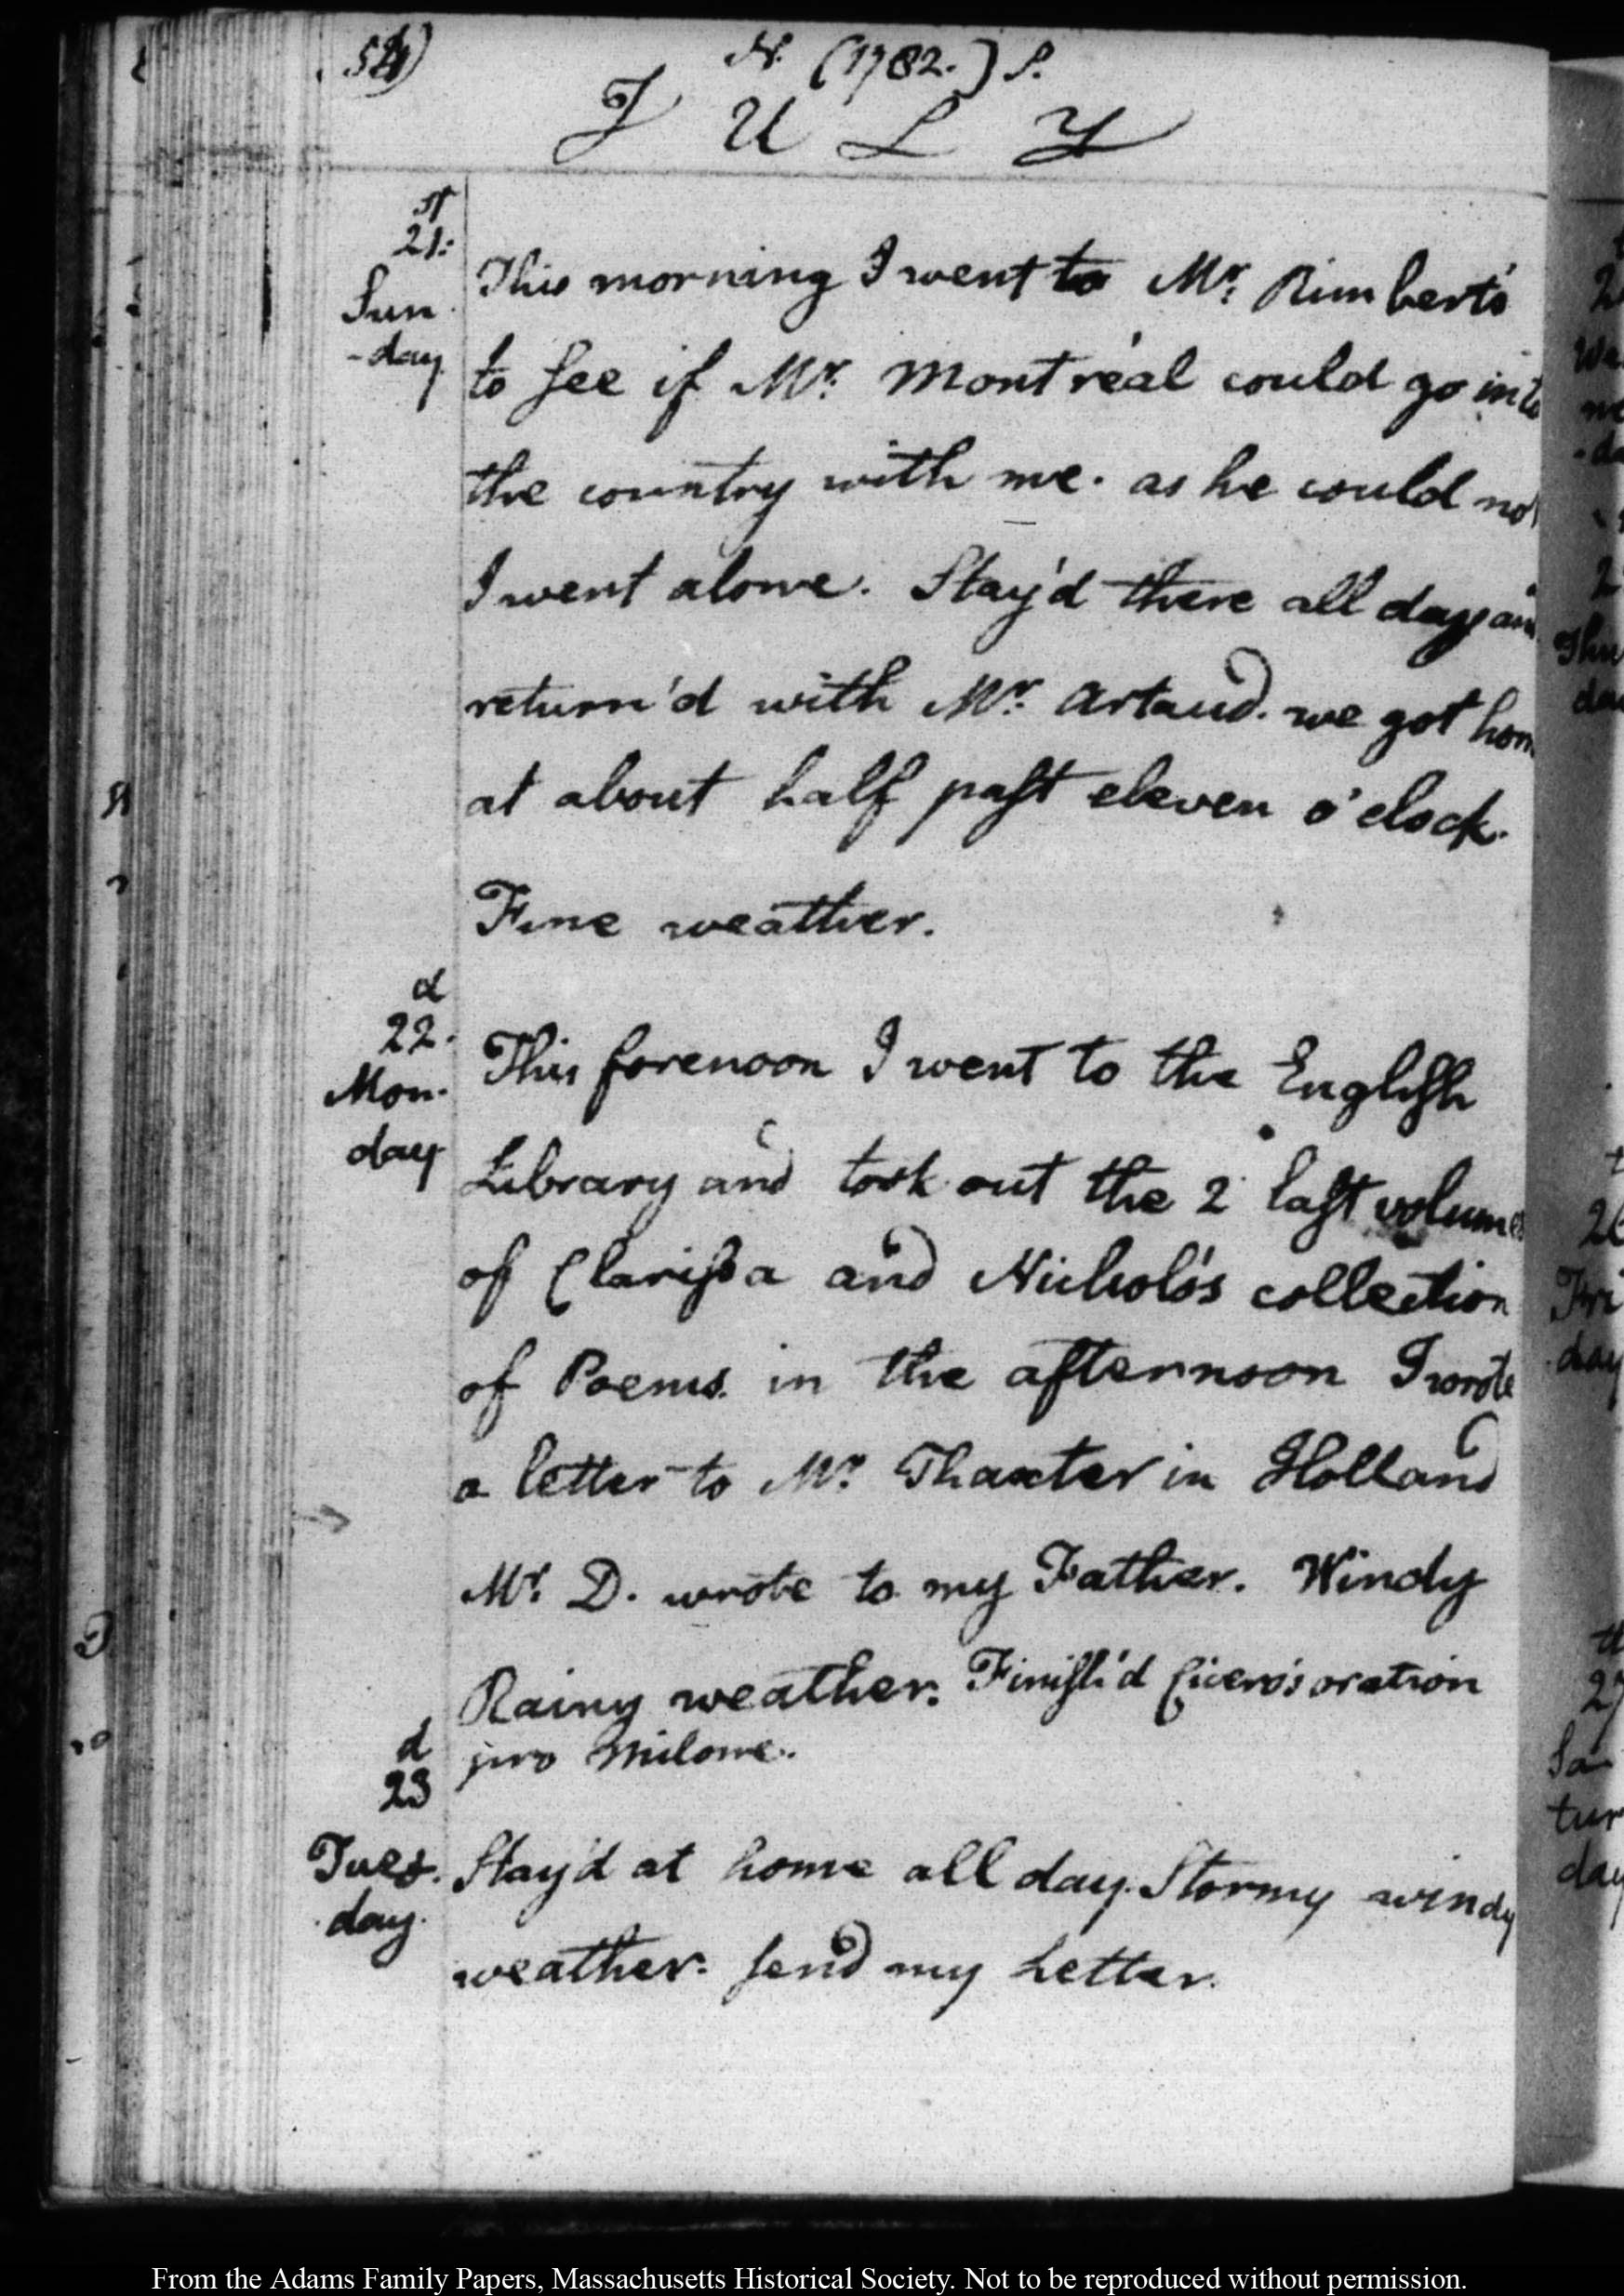 N. (1782.) S.
JULY
st
21:
Sun
-day
This morning I went to Mr. Rimbert's
to see if Mr. Montréal could go into
the country with me. as he could not
I went alone. Stay'd there all day an
return'd with Mr. Artaud. we got hom
at about half past eleven o'clock.
Fine weather.
d
22.
Mon.
day
This forenoon I went to the English
Library and took out the 2 last volumes
of Clarissa and Nichols's collection
of Poems. in the afternoon I wrote
a letter to Mr. Thaxter in Holland
Mr. D. wrote to my Father. Windy
Rainy weather. Finish'd Cicero's oration
pro Milone.
d
23
Tues.
day.
Stay'd at home all day. Stormy windy
weather. send my Letter.
From the Adams Family Papers, Massachusetts Historical Society. Not to be reproduced without permission.